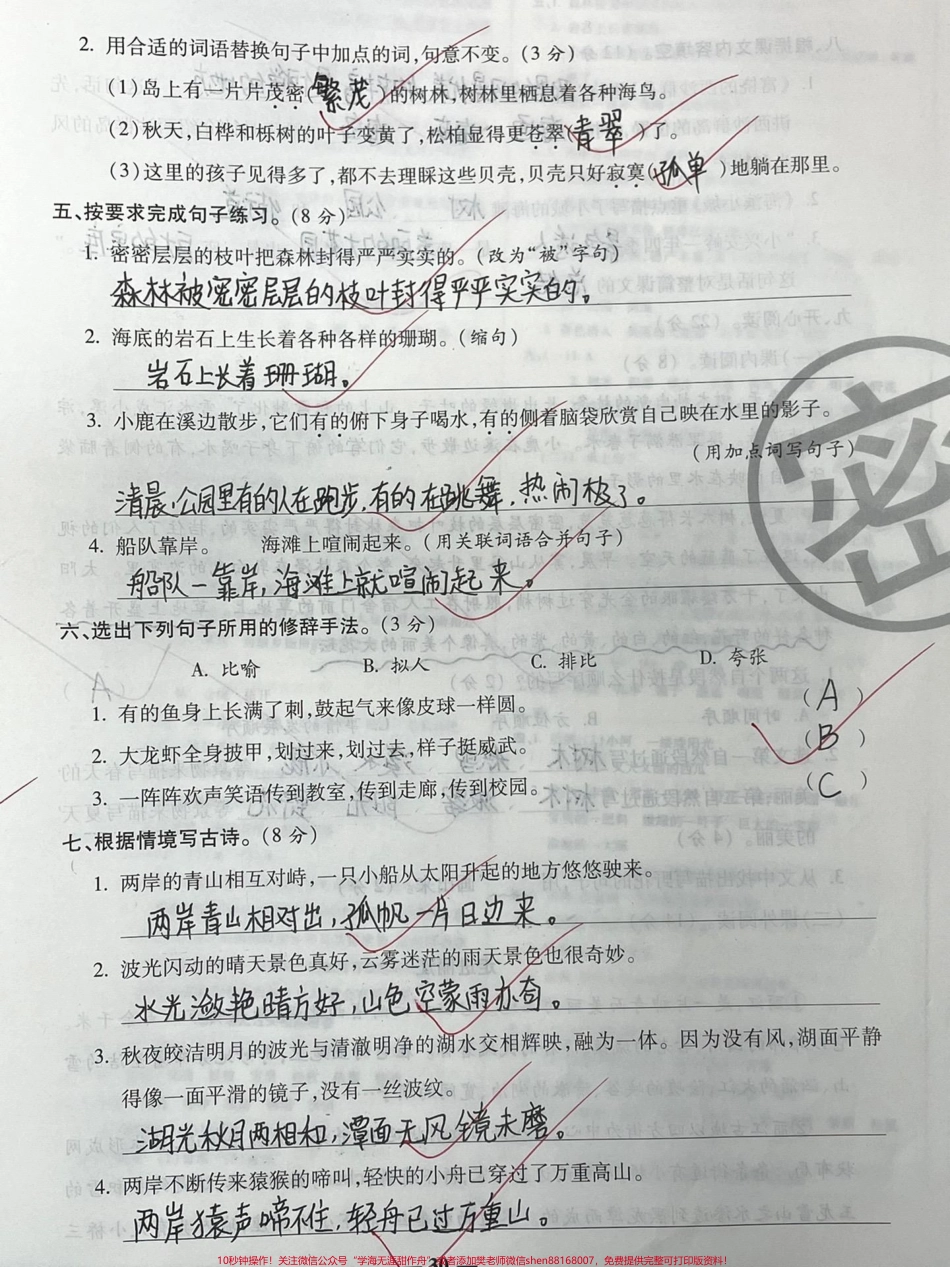 2. 用合适的词语替换句子中加点的词,句意不变。(3 分)
(1)岛上有一片片茂密(繁茂)的树林,树林里栖息着各种海鸟。
(2)秋天,白桦和栎树的叶子变黄了,松柏显得更苍翠(青翠)了。
(3)这里的孩子见得多了,都不去理睬这些贝壳,贝壳只好寂寞(孤单)地躺在那里。
五、按要求完成句子练习。(8 分)
1. 密密层层的枝叶把森林封得严严实实的。(改为“被”字句)
森林被密密层层的枝叶封得严严实实的。
2. 海底的岩石上生长着各种各样的珊瑚。(缩句)
岩石上长着珊瑚。
3. 小鹿在溪边散步,它们有的俯下身子喝水,有的侧着脑袋欣赏自己映在水里的影子。
(用加点词写句子)
清晨,公园里有的人在跑步,有的在跳舞,热闹极了。
4. 船队靠岸。 海滩上喧闹起来。(用关联词语合并句子)
船队一靠岸,海滩上就喧闹起来。
六、选出下列句子所用的修辞手法。(3 分)
A. 比喻 B. 拟人 C. 排比 D. 夸张
1. 有的鱼身上长满了刺,鼓起气来像皮球一样圆。 (A)
2. 大龙虾全身披甲,划过来,划过去,样子挺威武。 (B)
3. 一阵阵欢声笑语传到教室,传到走廊,传到校园。 (C)
七、根据情境写古诗。(8 分)
1. 两岸的青山相互对峙,一只小船从太阳升起的地方悠悠驶来。
两岸青山相对出,孤帆一片日边来。
2. 波光闪动的晴天景色真好,云雾迷茫的雨天景色也很奇妙。
水光潋艳晴方好,山色空蒙雨亦奇。
3. 秋夜皎洁明月的波光与清澈明净的湖水交相辉映,融为一体。因为没有风,湖面平静
得像一面平滑的镜子,没有一丝波纹。
湖光秋月两相和,潭面无风镜未磨。
4. 两岸不断传来猿猴的啼叫,轻快的小舟已穿过了万重高山。
两岸猿声啼不住,轻舟已过万重山。
密
10秒钟操作!关注微信公众号“学海无涯甜作舟”或者添加樊老师微信shen88168007,免费提供完整可打印版资料!